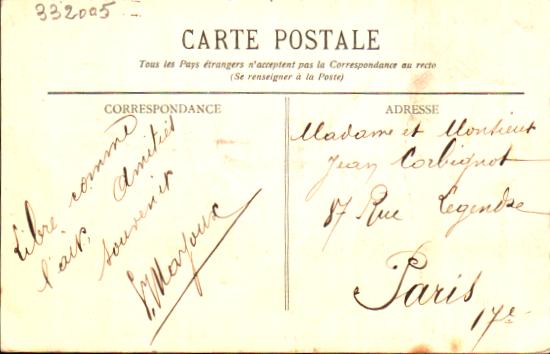 332005
CARTE POSTALE
Tous les Pays étrangers n'acceptent pas la Correspondance au recto
(Se renseigner à la Poste)
CORRESPONDANCE
Libre comme
l'air,
Amitiés
souvenir
ADRESSE
Madame et Monsieur
Jean Corbignot
87 Rue Legendre
Paris
17e